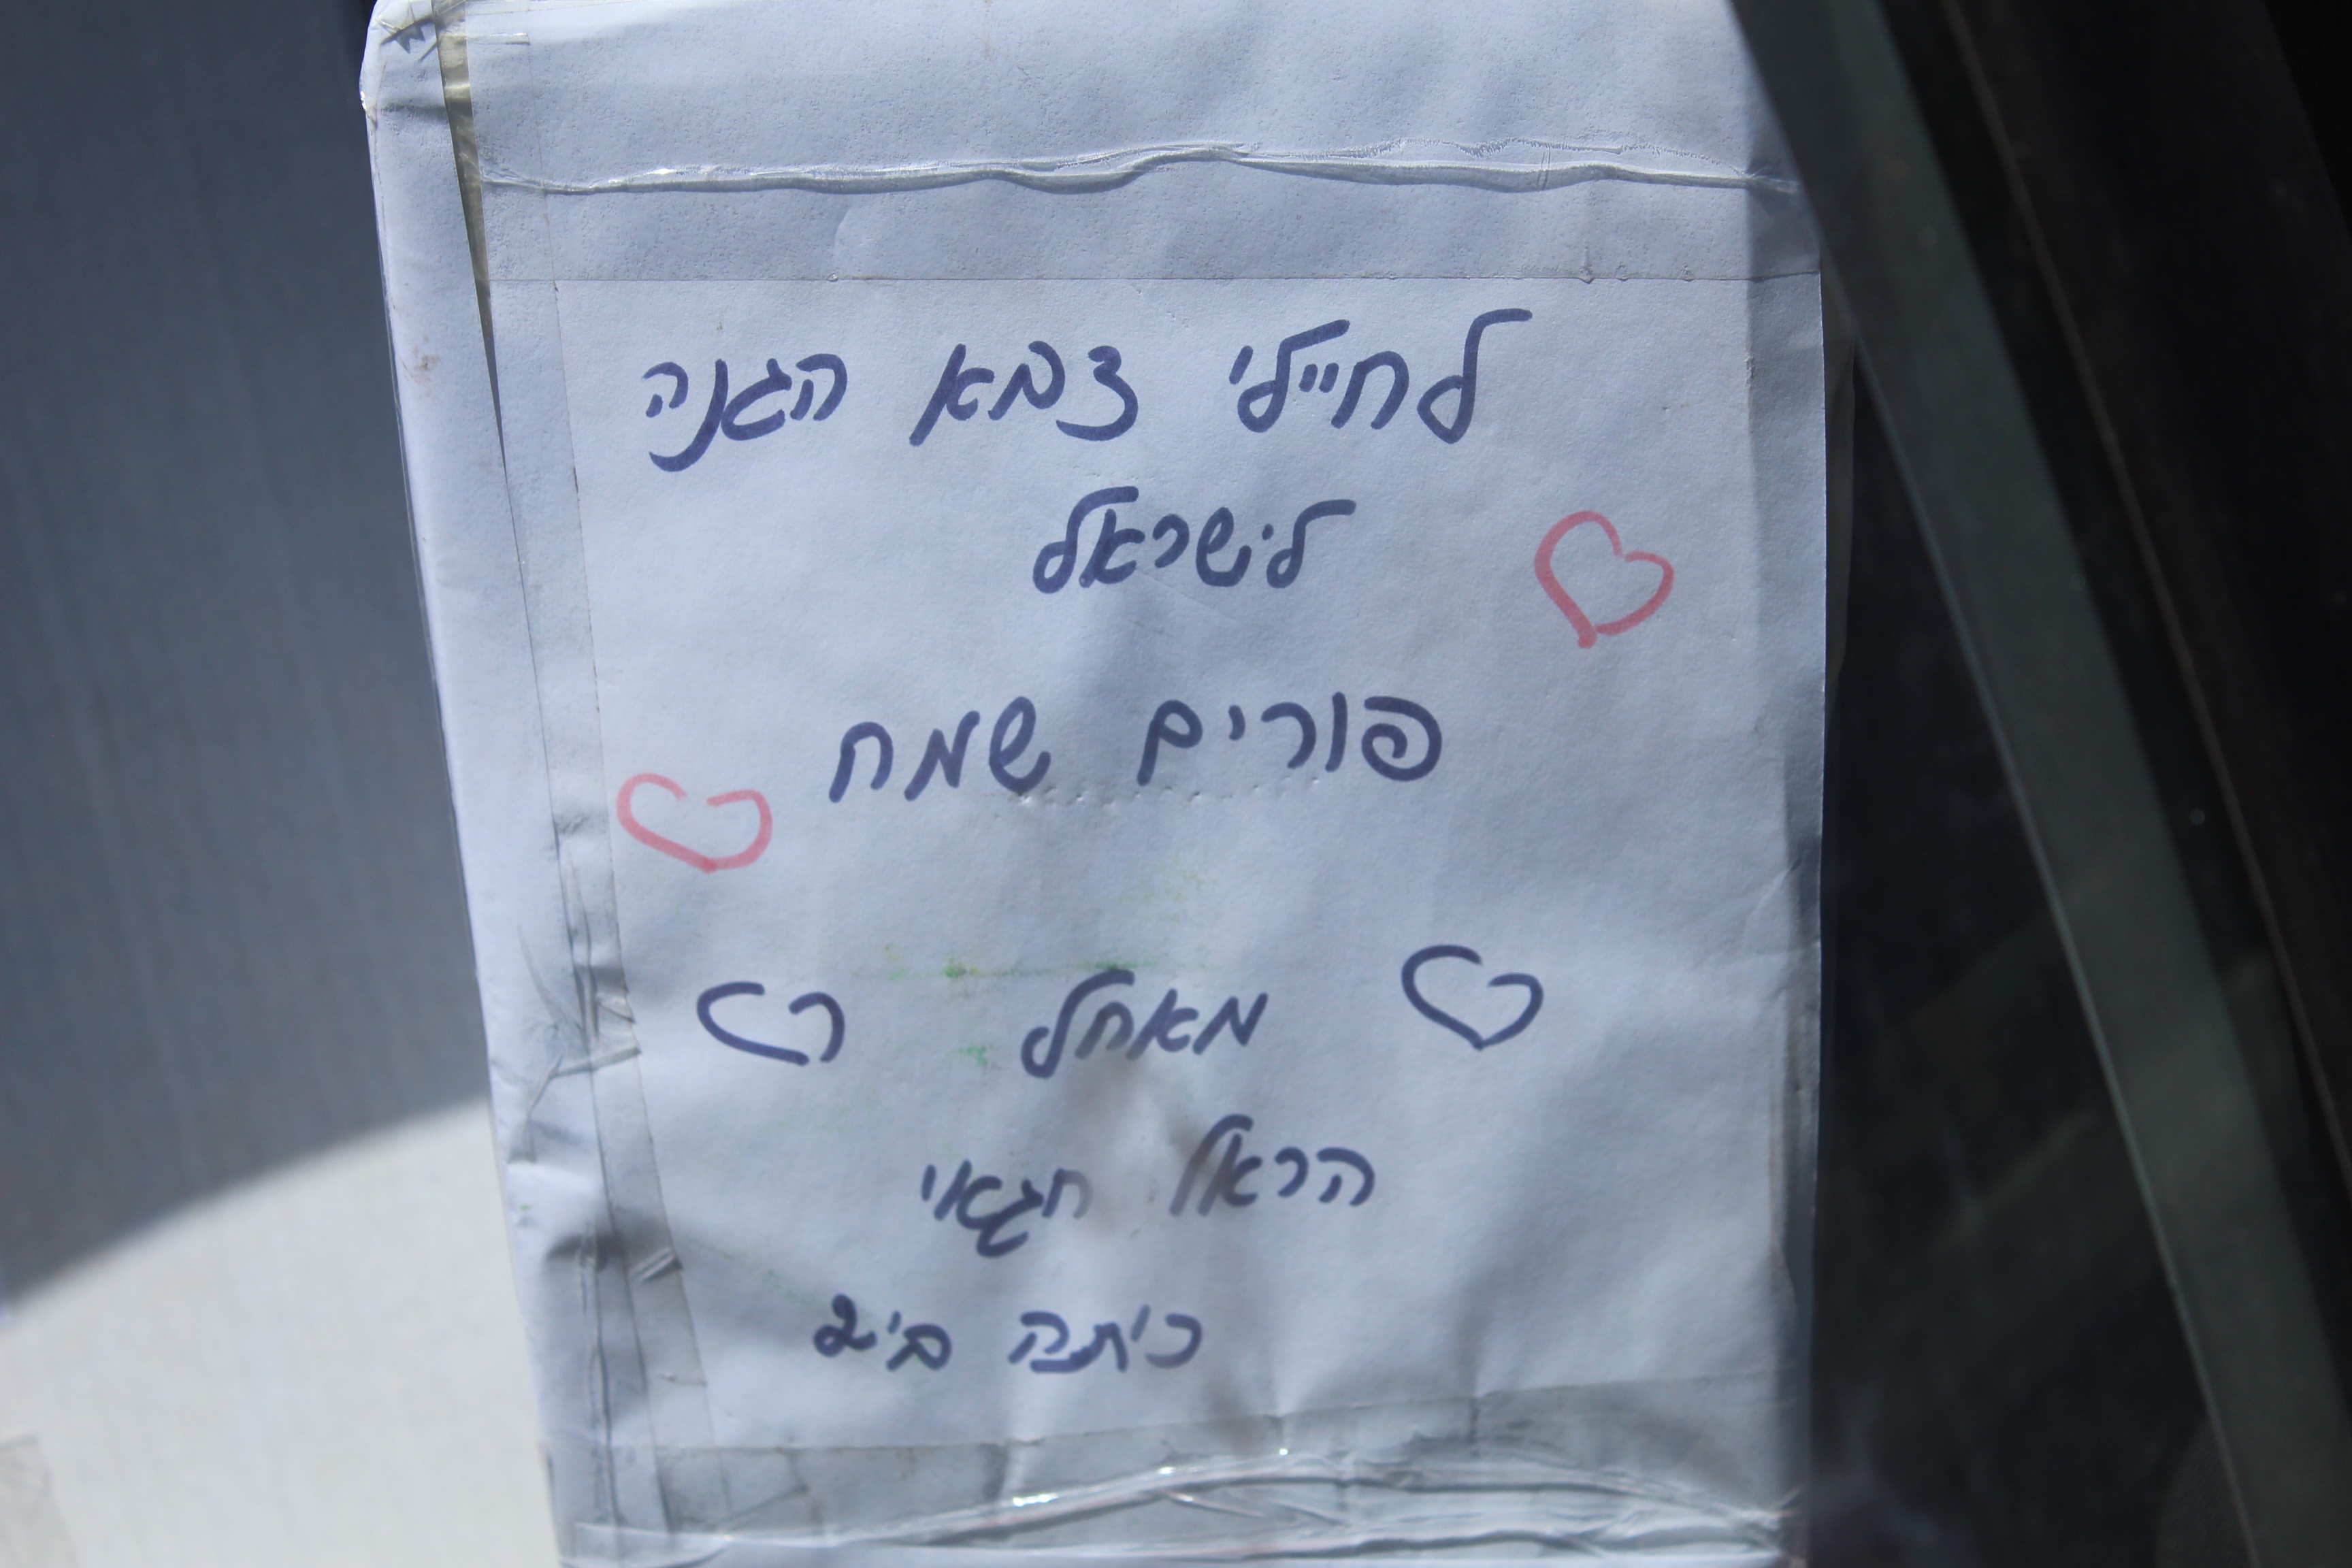 לחיילי צבא הגנה
לישראל
פורים שמח
מאחל
הראל חגאי
כיתה ב'2